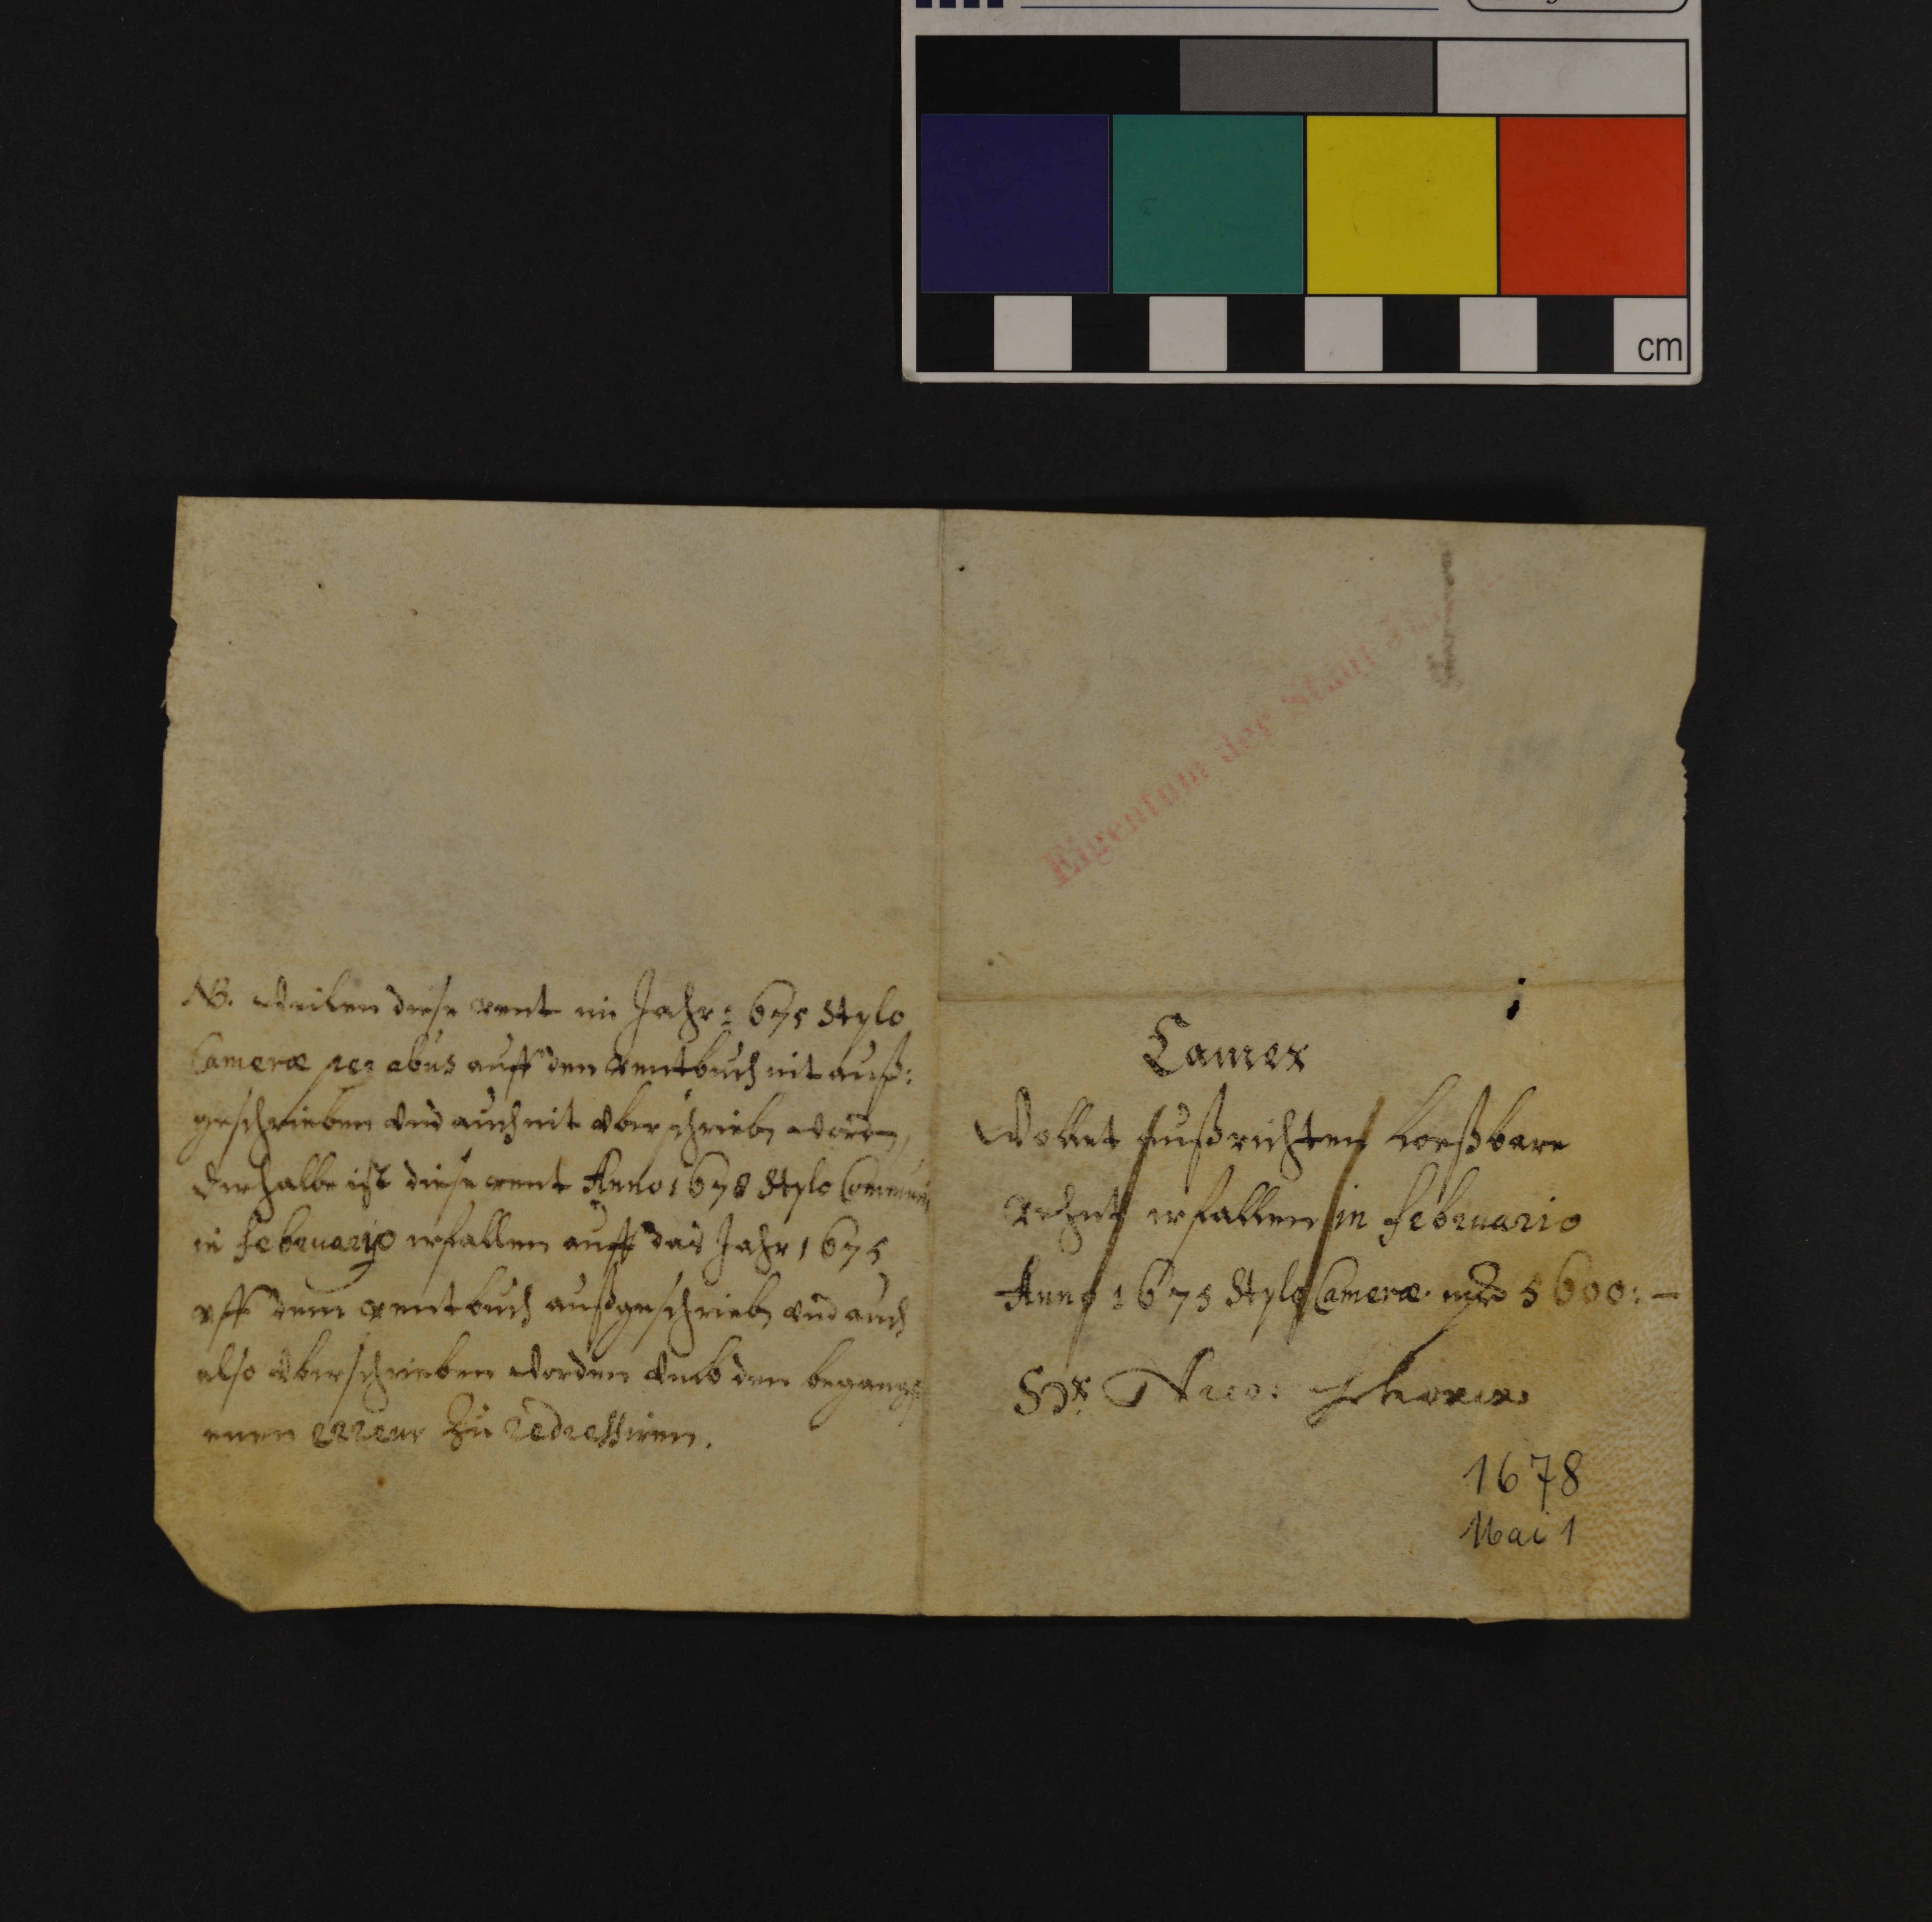 cm
Eigentum der Stadt
NB. Weilen diese rent im Jahr 1675 Stylo
Cameræ per abus auff den rentbuch nit auß:
geschrieben vnd auch nit vberschrieben worden,
derhalbe ist diese rent Anno 1678 Stylo Communi
in februario erfallen auff das Jahr 1675
vff dem rentbuch außgeschrieben vnd auch
also vberschrieben worden vmb den begang:
enen erreur zu redressiren.
Camer
Wollet außrichten loeßbare
rehnt erfallen in februario
Anno 1675 Stylo Cameræ 5600:—
1678
Mai 1